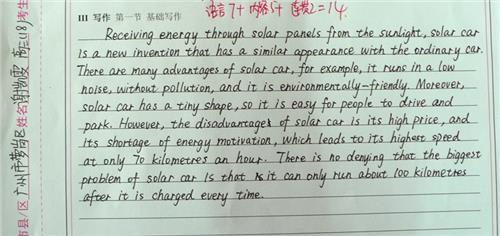 语言7+内容5+连贯2=14
III 写作 第一节 基础写作
Receiving energy through solar panels from the sunlight, solar car
is a new invention that has a similar appearance with the ordinary car.
There are many advantages of solar car, for example, it runs in a low
noise, without pollution, and it is environmentally-friendly. Moreover,
solar car has a tiny shape, so it is easy for people to drive and
park. However, the disadvantages of solar car is its high price, and
its shortage of energy motivation, which leads to its highest speed
at only 70 kilometres an hour. There is no denying that the biggest
problem of solar car is that it can only run about 100 kilometres
after it is charged every time.
市县/区 广州市萝岗区 姓名 高三(18) 考生